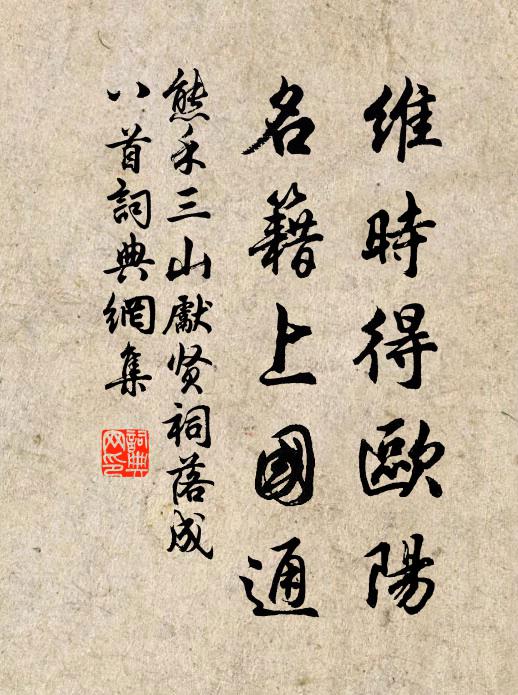 維時得歐陽
名籍上國通
熊禾三山獻贤祠落成
八首詞典網集
詞典网印